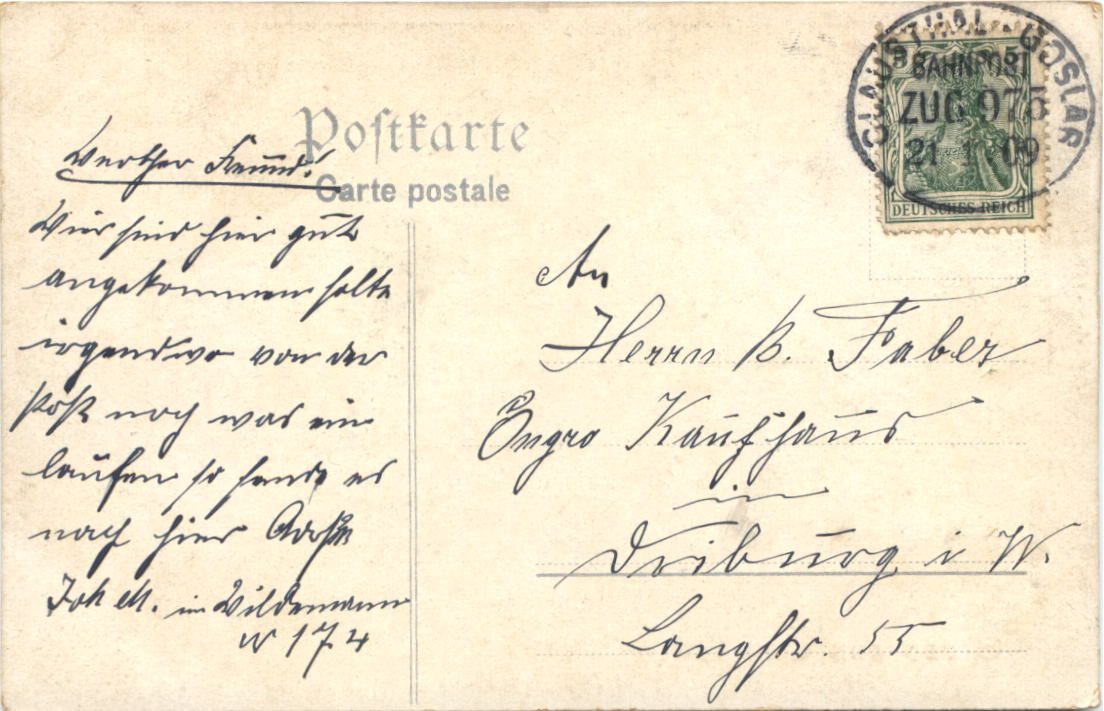 Postkarte
Carte postale
CLAUSTHAL-GOSLAR
BAHNPOST
ZUG 975
21 1 09
DEUTSCHES REICH
Werther Freund!
Wier sind hier gut
angekommen solte
irgendwo von der
Post noch was ein
laufen so sende es
nach hier
Joh M. in Wildemann
N 174
An
Herrn B. Faber
Engro Kaufhaus
in
Driburg i W.
Langstr. 55